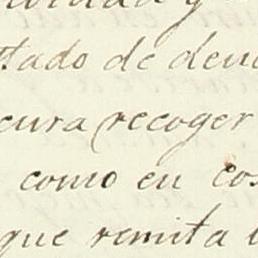 tado de deu
cura recoger
como en cos
que remita